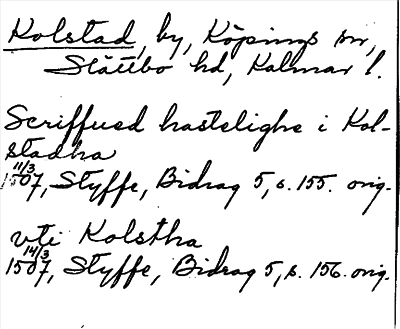 Kolstad, by, Köpings sn,
Slättbo hd, Kalmar l.
Scriffued hastelighe i Kol-
stadha
11/3
1507, Styffe, Bidrag 5, s. 155. orig.
vti Kolstha
14/3
1507, Styffe, Bidrag 5, s. 156. orig.